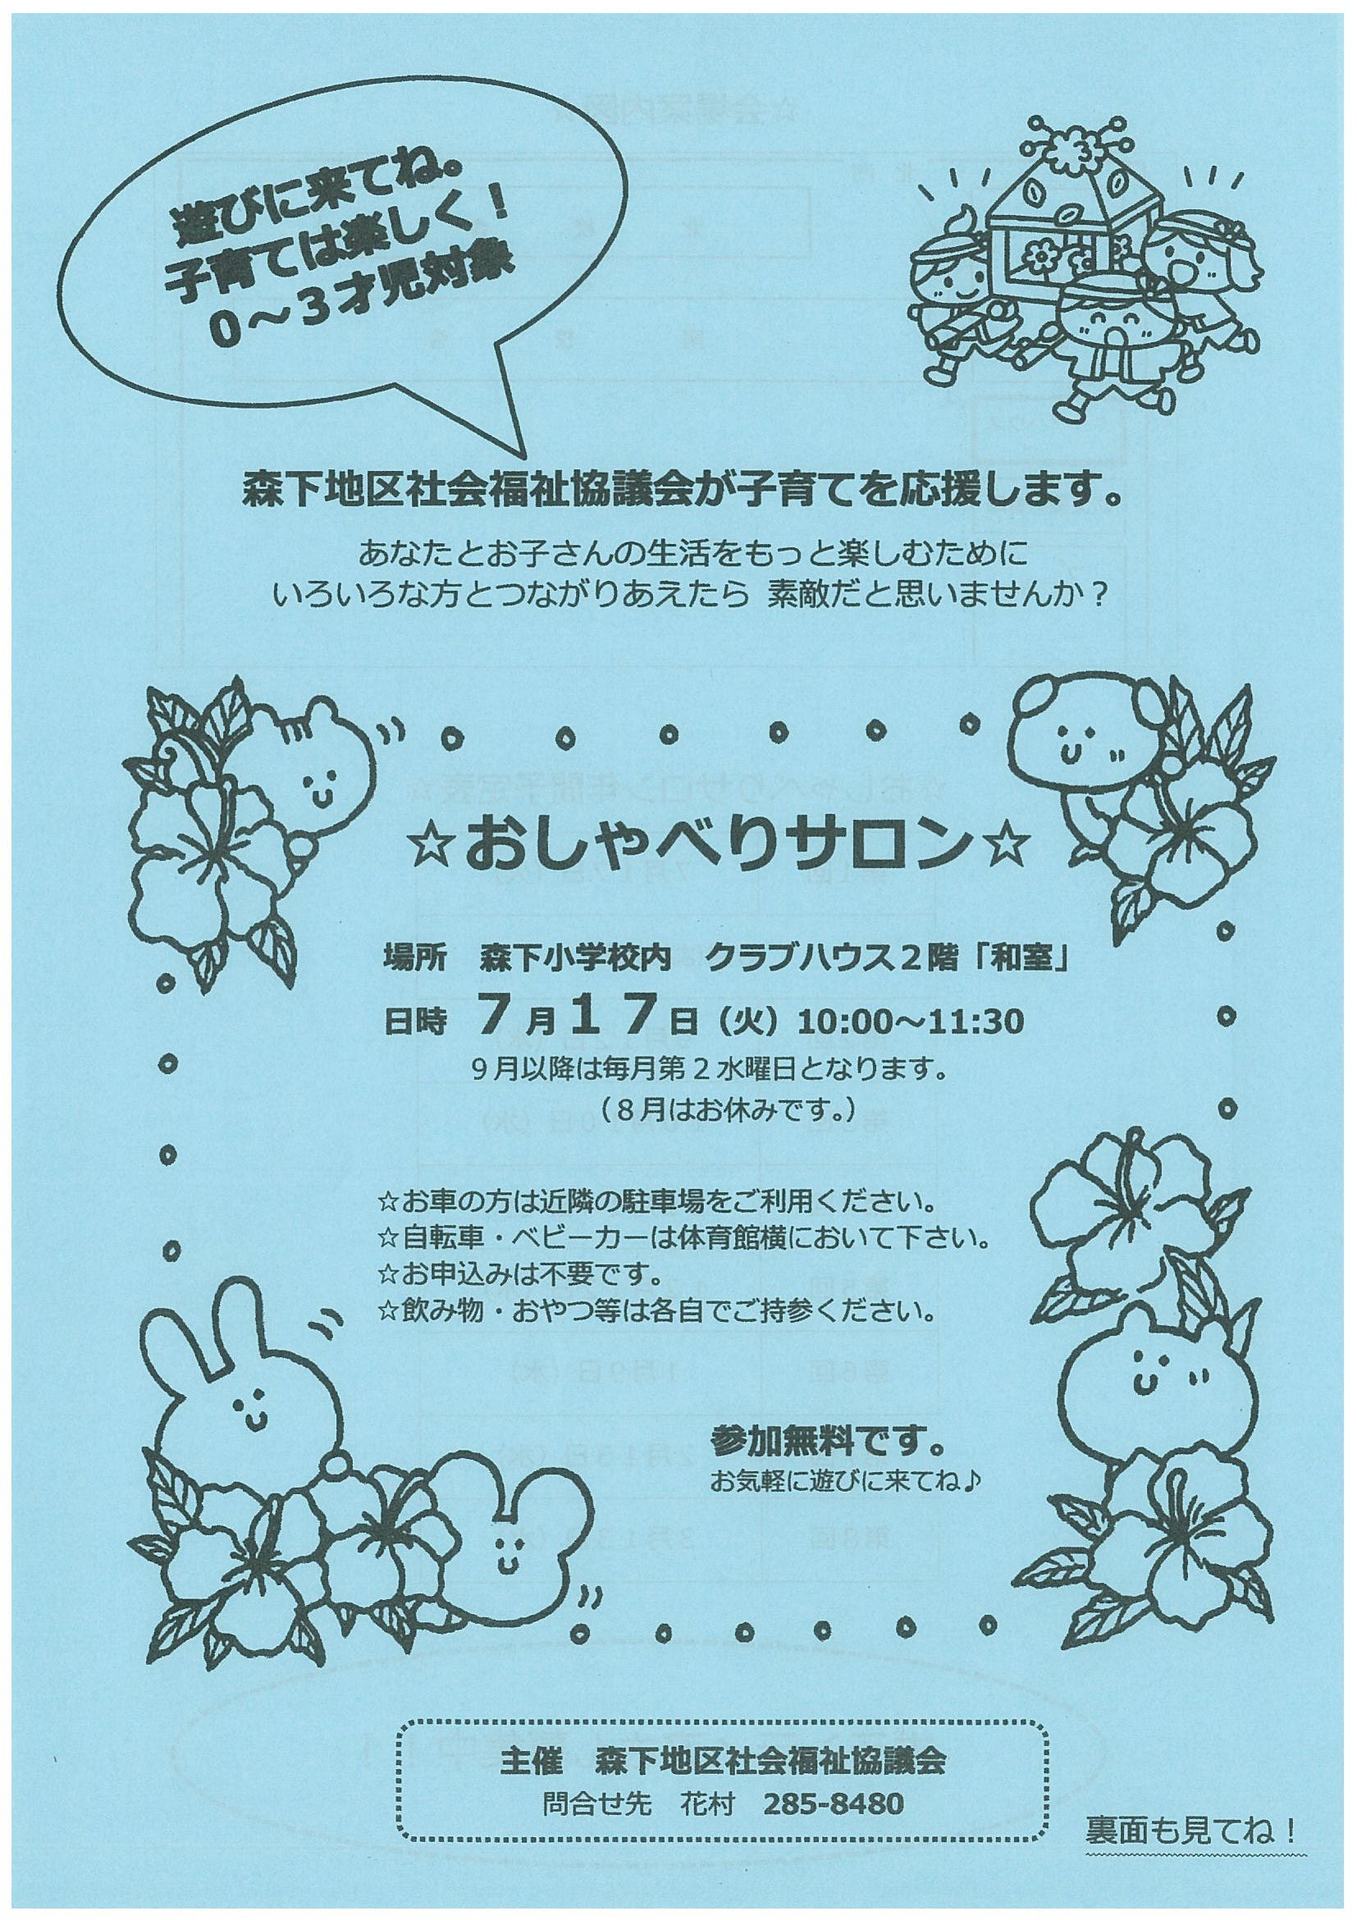 遊びに来てね。
子育ては楽しく！
０～３才児対象
森下地区社会福祉協議会が子育てを応援します。
あなたとお子さんの生活をもっと楽しむために
いろいろな方とつながりあえたら 素敵だと思いませんか？
☆おしゃべりサロン☆
場所　森下小学校内　クラブハウス２階「和室」
日時　７月１７日（火）10:00～11:30
９月以降は毎月第２水曜日となります。
（８月はお休みです。）
☆お車の方は近隣の駐車場をご利用ください。
☆自転車・ベビーカーは体育館横において下さい。
☆お申込みは不要です。
☆飲み物・おやつ等は各自でご持参ください。
参加無料です。
お気軽に遊びに来てね♪
主催　森下地区社会福祉協議会
問合せ先　花村　285-8480
裏面も見てね！